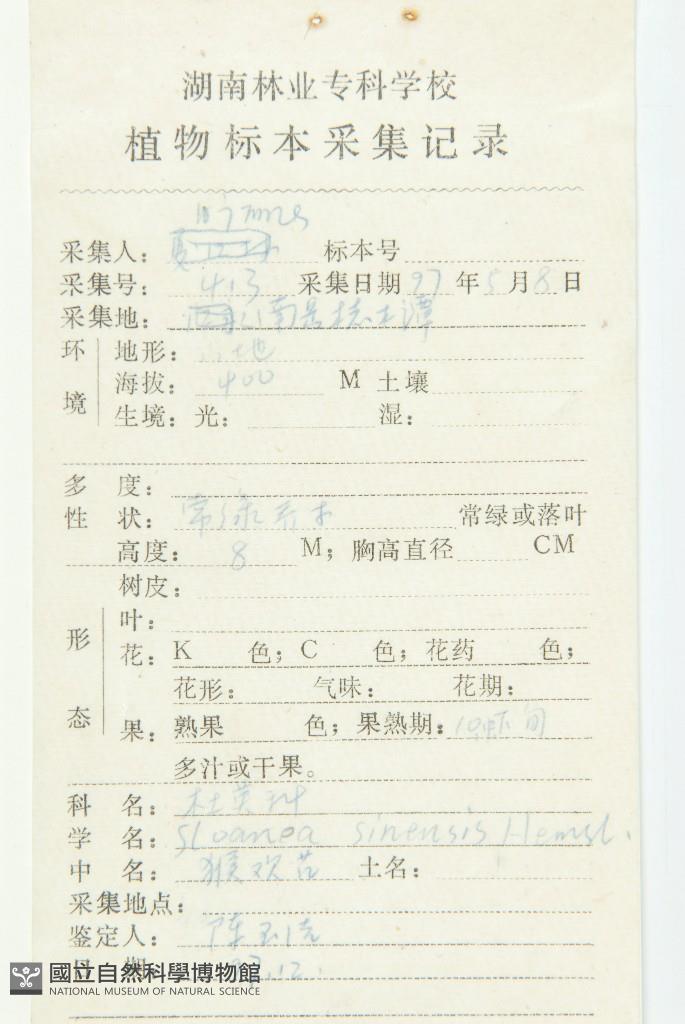 湖南林业专科学校
植物标本采集记录
采集人： 标本号
采集号： 413 采集日期 97 年 5 月 8 日
采集地：
环境 地形：
海拔： 400 M 土壤
生境：光： 湿：
多度：
性状： 常绿乔木 常绿或落叶
高度： 8 M；胸高直径 CM
树皮：
形态 叶：
花：K 色；C 色；花药 色；
花形： 气味： 花期：
果：熟果 色；果熟期： 旬
多汁或干果。
科名： 杜英科
学名： Sloanea sinensis Hemsl.
中名： 猴欢 土名：
采集地点：
鉴定人： 陈
日期 12.
國立自然科學博物館
NATIONAL MUSEUM OF NATURAL SCIENCE